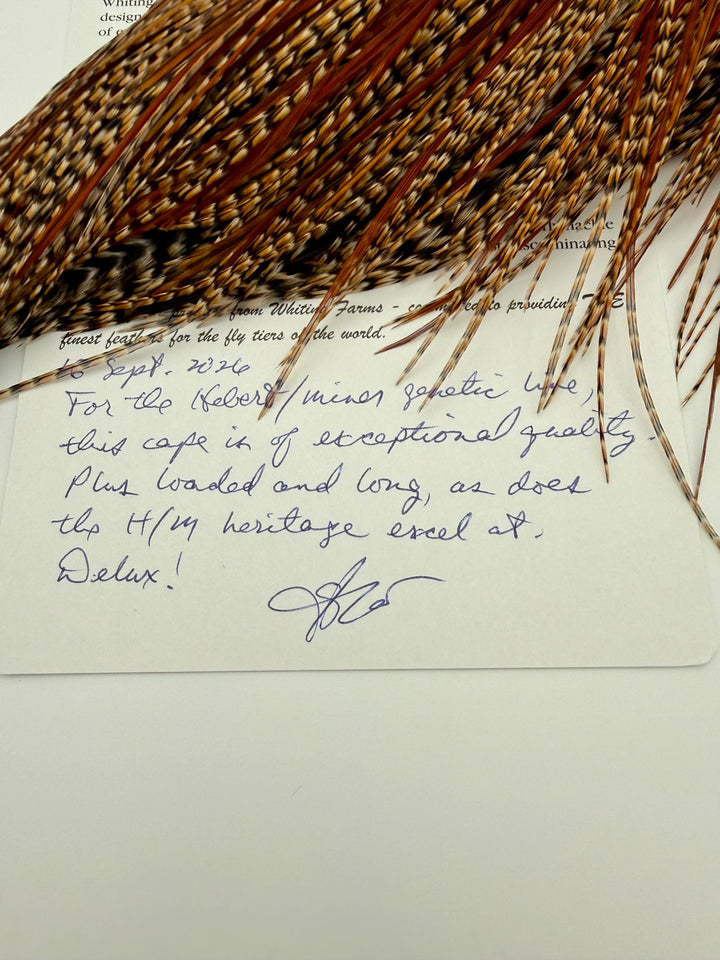 Whiting
design
of
ackle
scriminating
from Whiting Farms - committed to providing THE
finest feathers for the fly tiers of the world.
Sept. 2026
For the Hebert/miner genetic line,
this cape is of exceptional quality.
Plus loaded and long, as does
the H/M heritage excel at.
Delux!